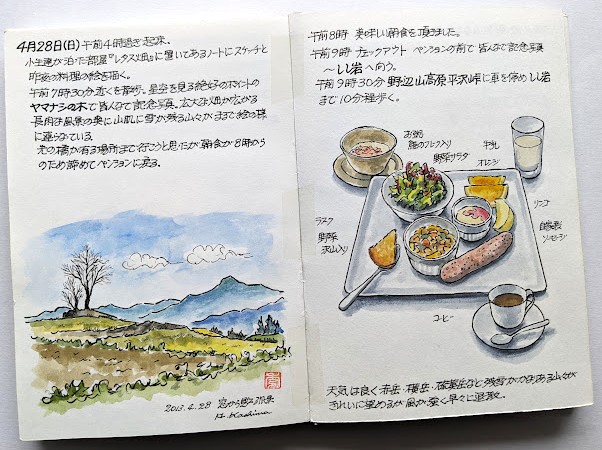 4月28日(日)午前4時過ぎ起床。
小生達が泊った部屋『レタス畑』に置いてあるノートにスケッチと
昨夜の料理の絵を描く。
午前7時30分近くを散歩。星空を見る絶好のポイントの
ヤマナシの木で皆んなで記念写真。広大な畑が広がる
長閑な風景の奥に山肌に雪が残る山々がまるで絵の様
に連らなっている。
先の橋が有る場所まで行こうと思ったが朝食が8時から
のため諦めてペンションに戻る。
2013.4.28
H. Kashima
午前8時 美味しい朝食を頂きました。
午前9時 チェックアウト ペンションの前で皆んなで記念写真
〜しし岩へ向う。
午前9時30分 野辺山高原平沢峠に車を停めしし岩
まで10分程歩く。
お粥
鮭のフレーク入り
野菜サラダ
牛乳
オレンジ
リンゴ
自家製
ソーセージ
ラスク
野菜
沢山入り
コーヒー
天気は良く赤岳・横岳・硫黄岳など残雪がかかる山々が
きれいに望めるが風が強く早々に退散。